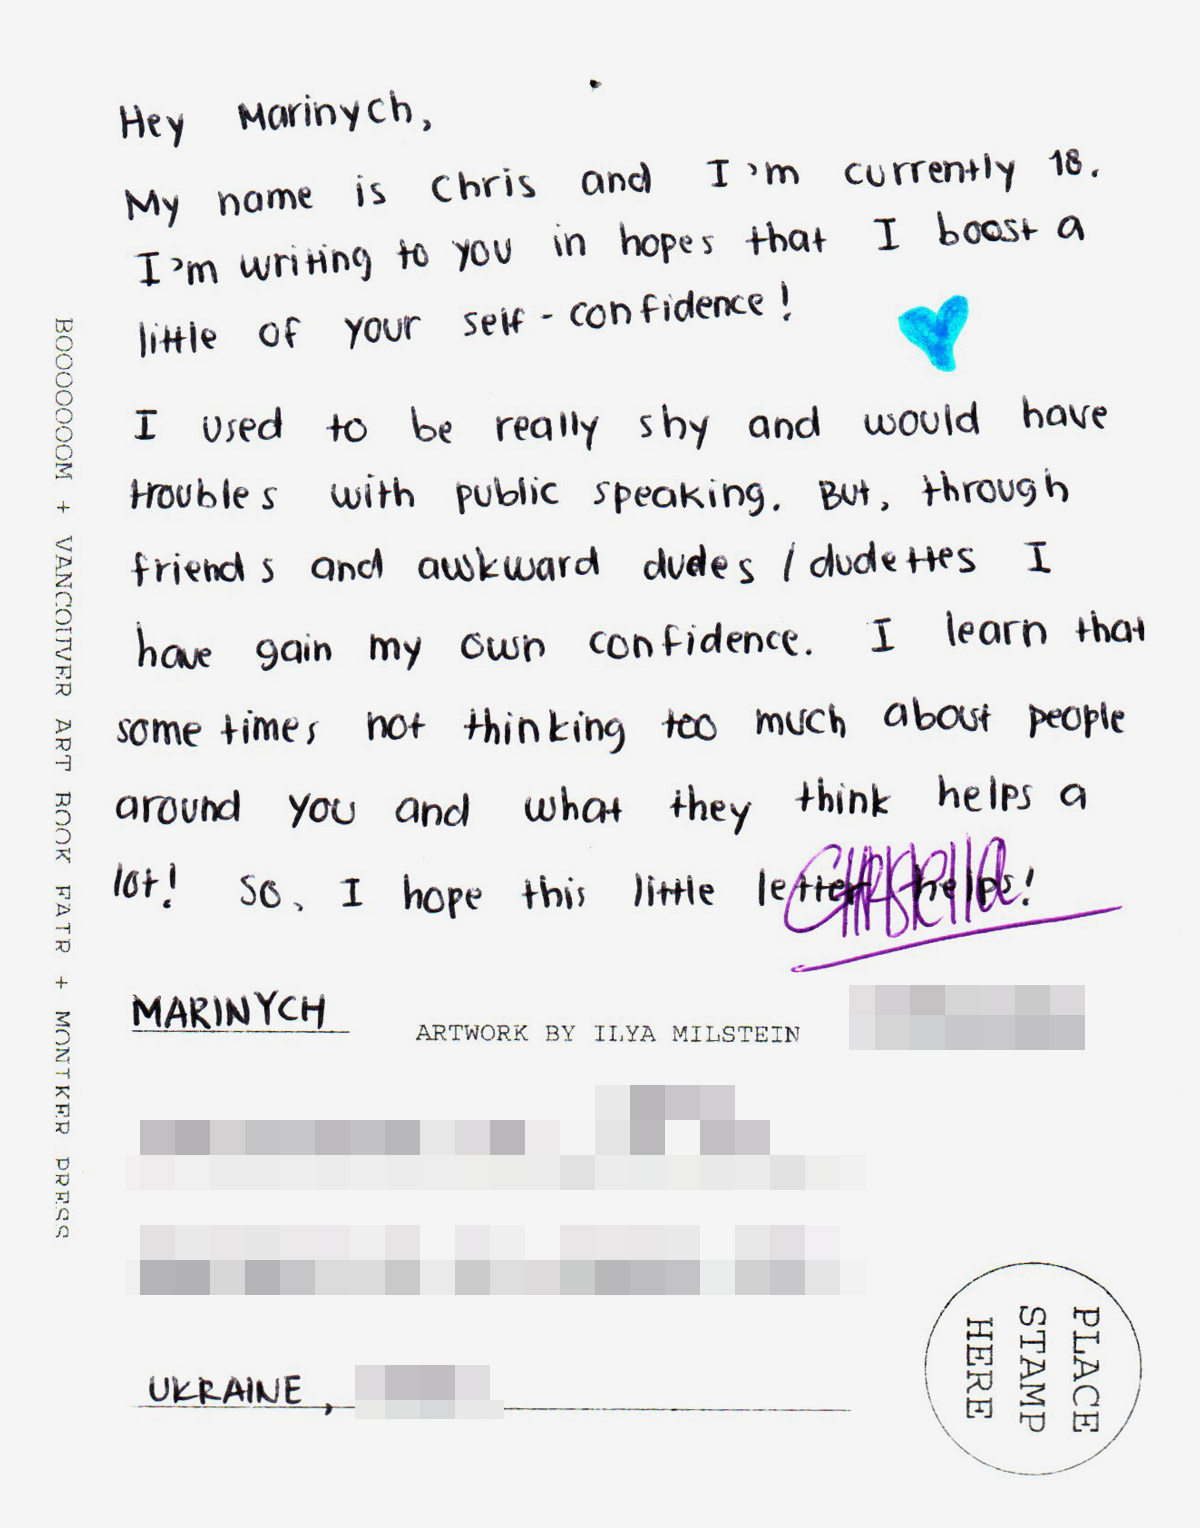 Hey Marinych,
My name is Chris and I'm currently 18.
I'm writing to you in hopes that I boost a
little of your self-confidence!
I used to be really shy and would have
troubles with public speaking. But, through
friends and awkward dudes / dudettes I
have gain my own confidence. I learn that
sometimes not thinking too much about people
around you and what they think helps a
lot! So, I hope this little letter helps!
MARINYCH
ARTWORK BY ILYA MILSTEIN
UKRAINE,
PLACE
STAMP
HERE
BOOOOOOOM + VANCOUVER ART BOOK FAIR + MONIKER PRESS